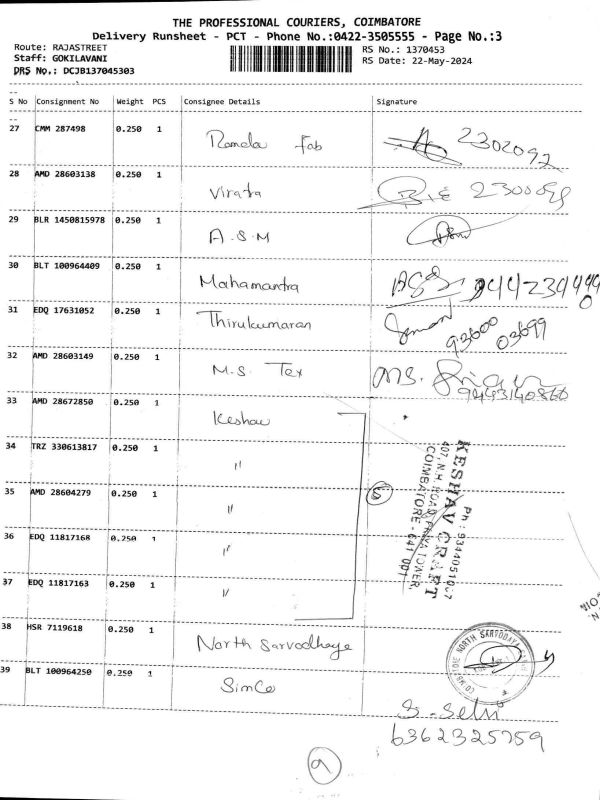 THE PROFESSIONAL COURIERS, COIMBATORE
Delivery Runsheet - PCT - Phone No.:0422-3505555 - Page No.:3
Route: RAJASTREET RS No.: 1370453
Staff: GOKILAVANI RS Date: 22-May-2024
DRS No.: DCJB137045303
S No Consignment No Weight PCS Consignee Details Signature
27 CMM 287498 0.250 1 Ramela Fab 2302092
28 AMD 28603138 0.250 1 Virata
29 BLR 1450815978 0.250 1 A.S.M
30 BLT 100964409 0.250 1 Mahamantra
31 EDQ 17631052 0.250 1 Thirukumaran 93600
03699
32 AMD 28603149 0.250 1 M.S. Tex MS.
33 AMD 28672850 0.250 1 Keshav
34 TRZ 330613817 0.250 1 "
35 AMD 28604279 0.250 1 " 5
36 EDQ 11817168 0.250 1 "
37 EDQ 11817163 0.250 1 "
KESHAV CRAFT
407, N.H. ROAD,
COIMBATORE - 641 001
38 HSR 7119618 0.250 1 North Sarvodhaya
39 BLT 100964250 0.250 1 Simco
S. Selvi
6362325759
9